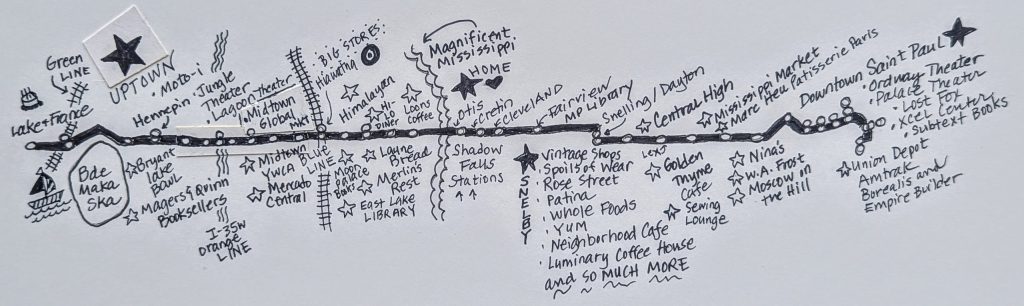 Green
LINE
Lake+France
Bde
Maka
Ska
UPTOWN
• Moto-i
Hennepin
Jungle
Theater
• Lagoon Theater
• Midtown
Global
MKT
Bryant
Lake
Bowl
Magers & Quinn
Booksellers
I-35W
Orange
LINE
Midtown
YWCA
Mercado
Central
BLUE
LINE
BIG STORES:
Hiawatha
Himalayan
Hi-
Lo
DINER
Loons
Coffee
Moon
Palace
Books
Laune
Bread
Merlins
Rest
East Lake
LIBRARY
Magnificent
Mississippi
HOME
Otis
Cretin
Cleveland
Fairview
MP Library
Shadow
Falls
Stations
↑ ↑
SELBY
• Vintage Shops
• Spoils of Wear
• Rose Street
• Patina
• Whole Foods
• YUM
• Neighborhood Cafe
• Luminary Coffee House
and SO MUCH MORE
Snelling/Dayton
Central High
Lex
Golden
Thyme
Cafe
Sewing
Lounge
Mississippi Market
Marc Heu Patisserie Paris
Nina's
W.A. Frost
Moscow on
the Hill
Downtown Saint Paul
• Ordway Theater
• Palace Theater
• Lost Fox
• Xcel Center
• Subtext Books
Union Depot
Amtrak
Borealis and
Empire Builder